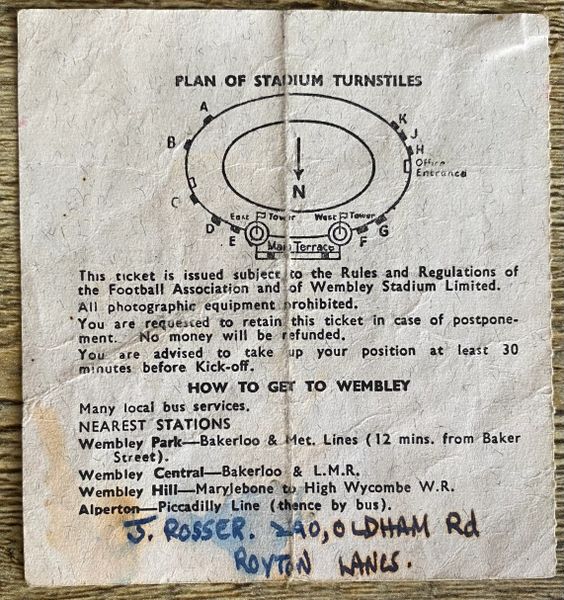 PLAN OF STADIUM TURNSTILES
A
K
J
B
H
Office
Entrance
N
C
D
East Tower
West Tower
G
E
F
Main Terrace
This ticket is issued subject to the Rules and Regulations of
the Football Association and of Wembley Stadium Limited.
All photographic equipment prohibited.
You are requested to retain this ticket in case of postpone-
ment. No money will be refunded.
You are advised to take up your position at least 30
minutes before Kick-off.
HOW TO GET TO WEMBLEY
Many local bus services.
NEAREST STATIONS
Wembley Park—Bakerloo & Met. Lines (12 mins. from Baker
Street).
Wembley Central—Bakerloo & L.M.R.
Wembley Hill—Marylebone to High Wycombe W.R.
Alperton—Piccadilly Line (thence by bus).
J. ROSSER. 290, OLDHAM Rd
ROYTON LANCS.